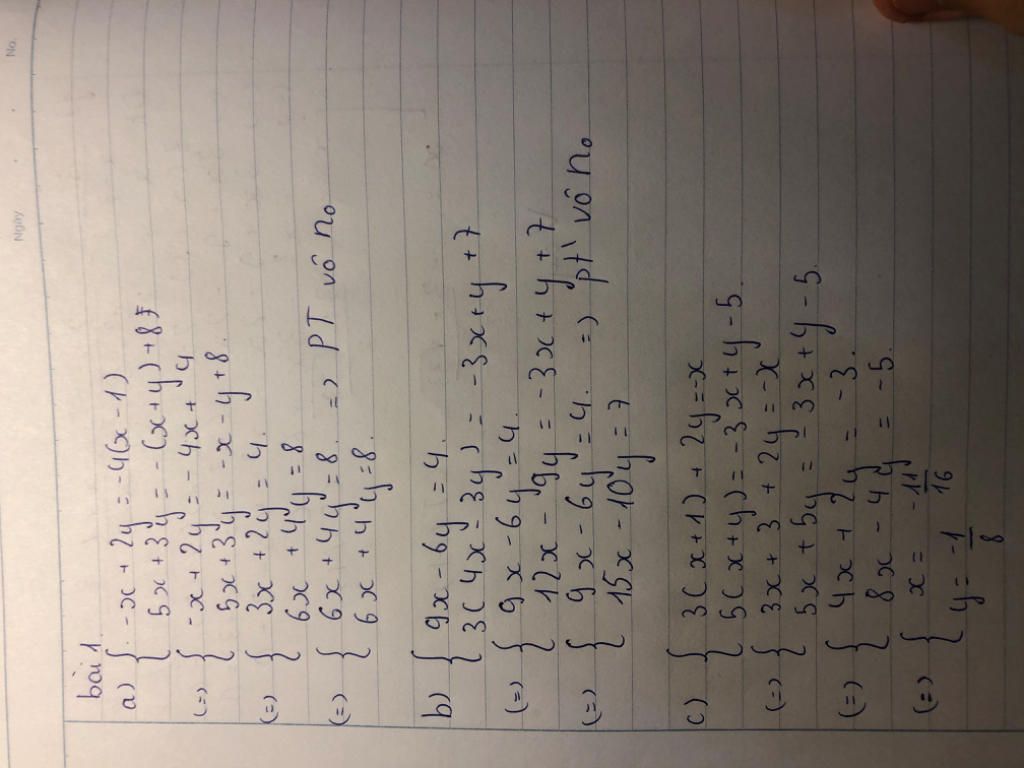 No.
Ngày
bài 1
a) { -x + 2y = -4(x - 1)
5x + 3y = -(x + y) + 8
(=) { -x + 2y = -4x + 4
5x + 3y = -x - y + 8.
(=) { 3x + 2y = 4.
6x + 4y = 8
(=) { 6x + 4y = 8. => PT vô no
6x + 4y = 8.
b) { 9x - 6y = 4.
3(4x - 3y) = -3x + y + 7
(=) { 9x - 6y = 4.
12x - 9y = -3x + y + 7
(=) { 9x - 6y = 4. =) pt vô no
15x - 10y = 7
c) { 3(x + 1) + 2y = -x
5(x + y) = -3x + y - 5.
(=) { 3x + 3 + 2y = -x
5x + 5y = -3x + y - 5.
(=) { 4x + 2y = -3.
8x - 4y = -5.
(=) { x = -11/16
y = -1/8